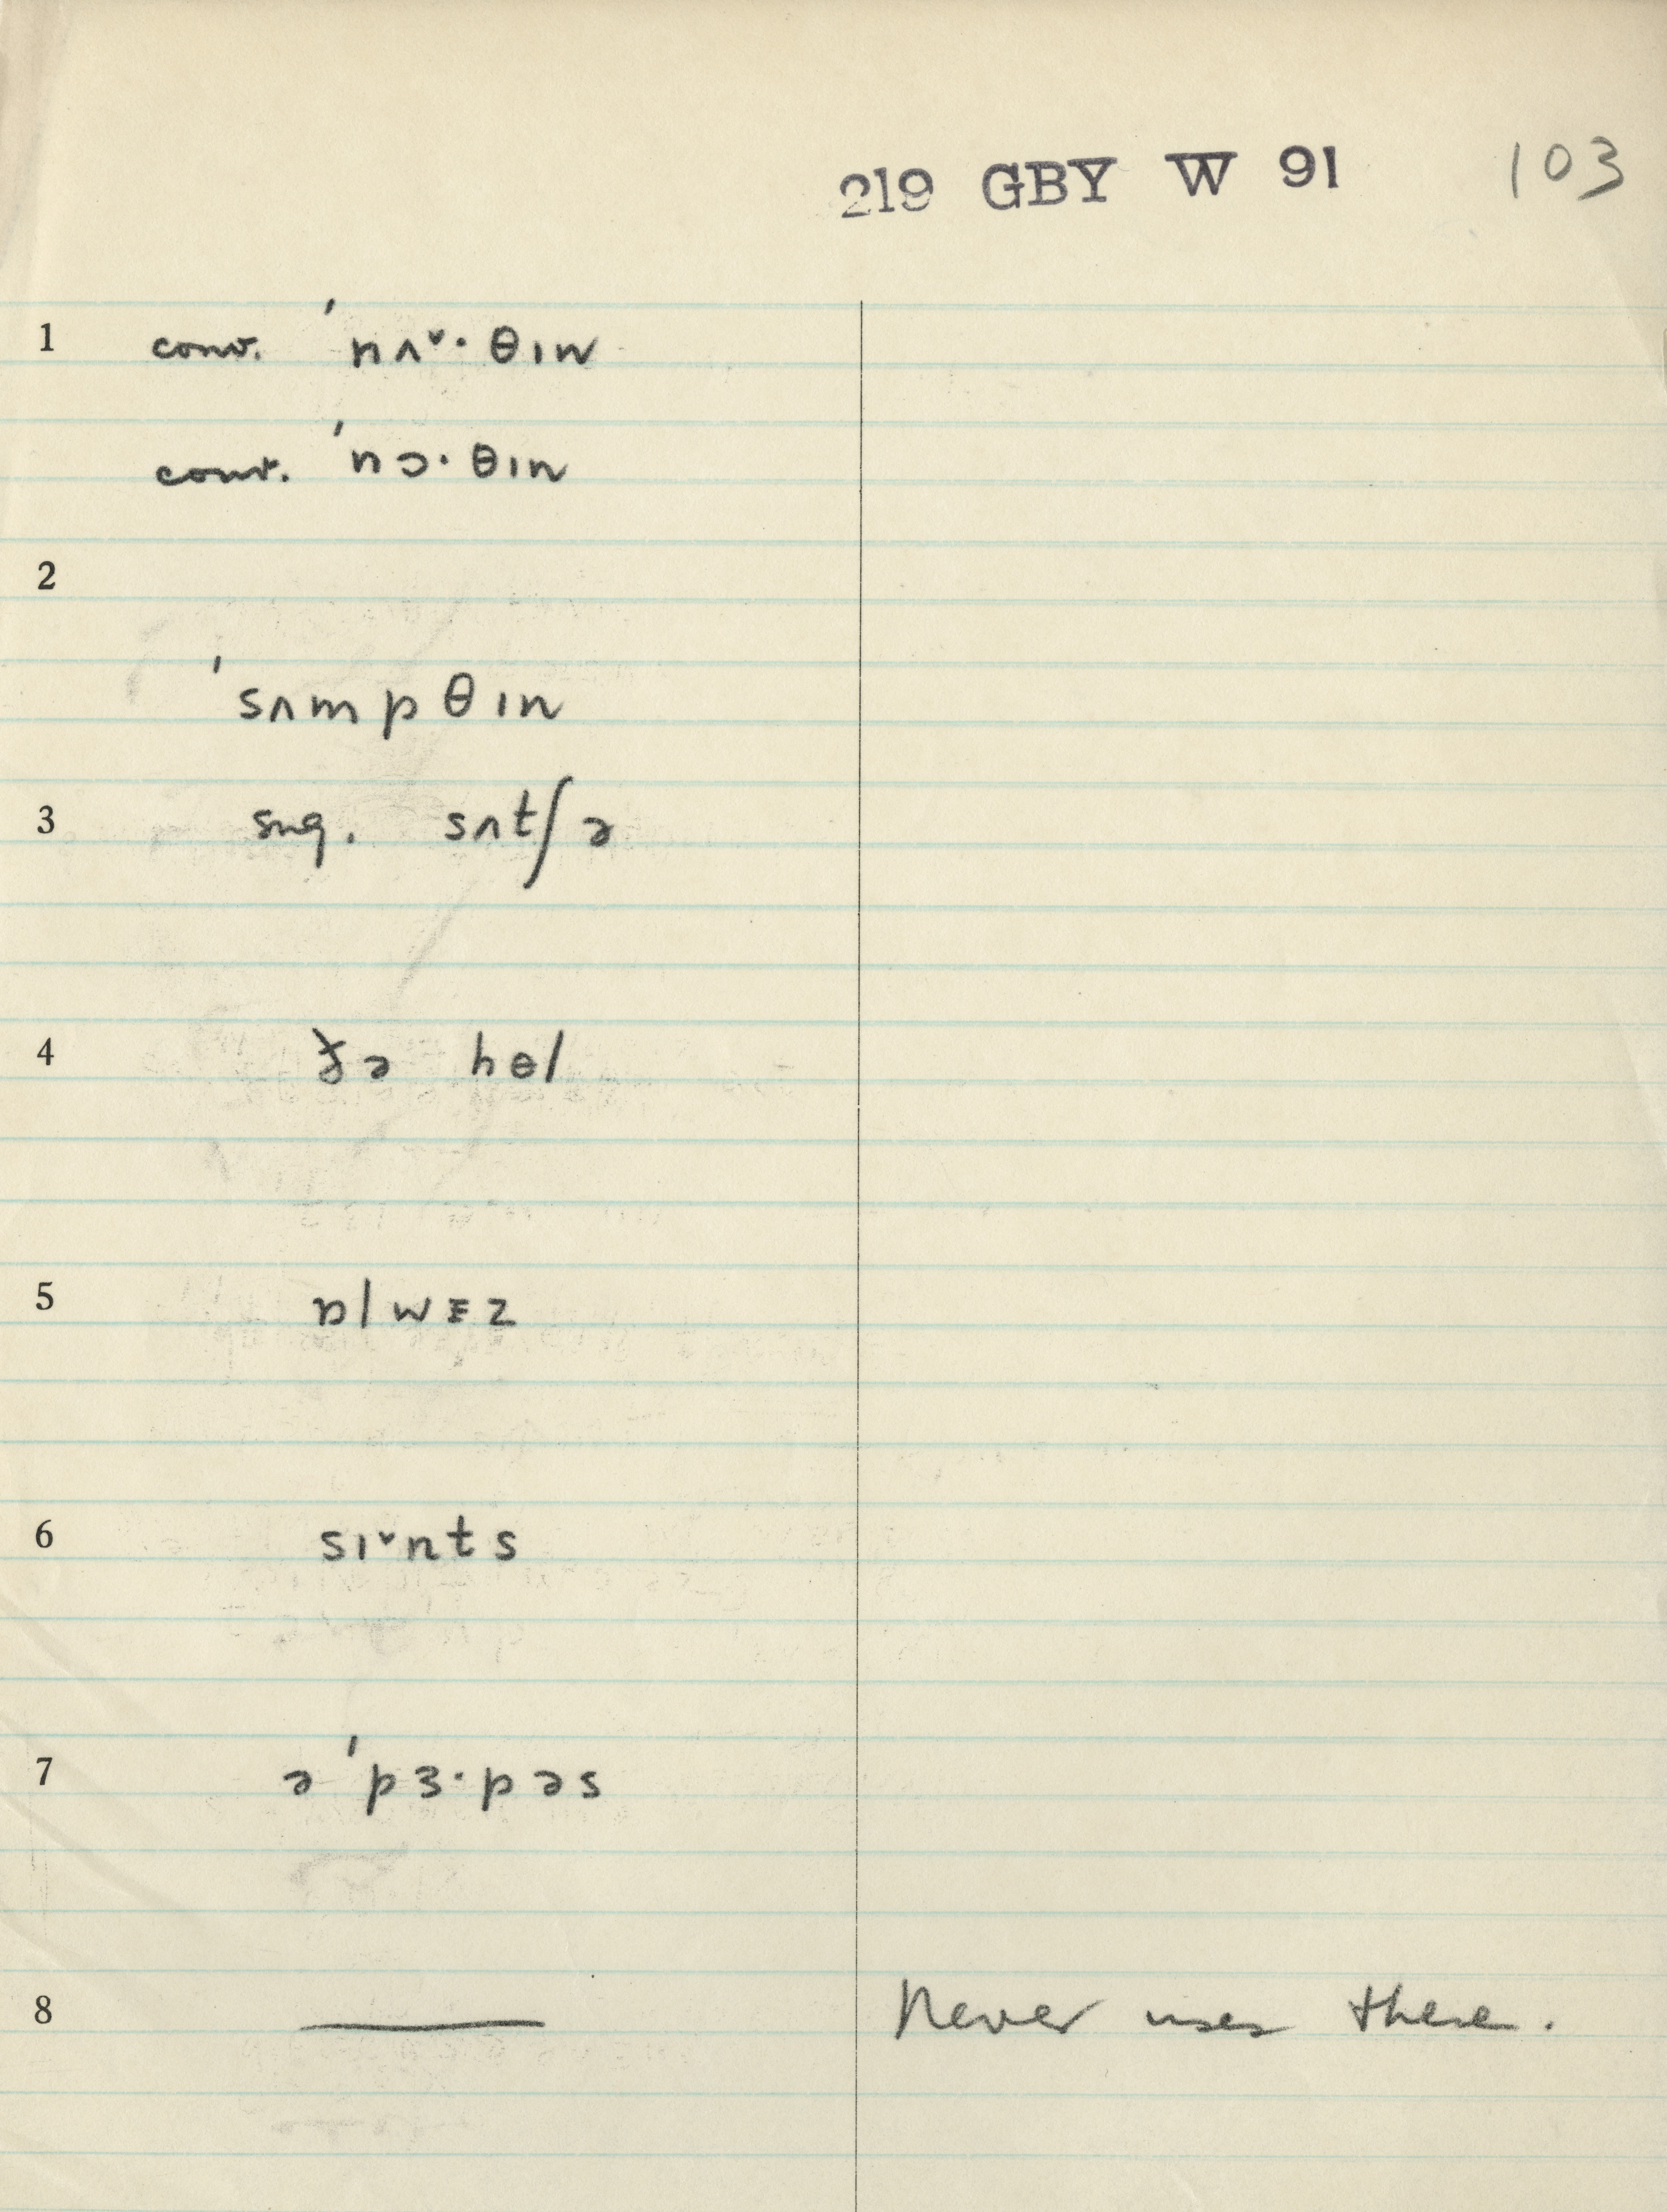 219 GBY W 91 103
1 conv. ˈnʌ˅· θɪn
conv. ˈnɔ· θɪn
2
ˈsʌmpθɪn
3 sug. sʌtʃə
4 ðə hɵl
5 ɒlwɛz
6 sɪ˅nts
7 əˈpɜ·pəs
8 —— Never uses these.